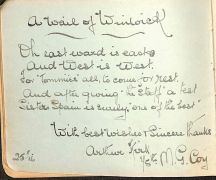 A wail of Winwick
Oh east ward is east
And West is West.
For Tommies all, to come for rest.
And after giving the Staff a test
Sister Spain is surely "one of the best"
With best wishes & Sincere Thanks
Arthur
M. G. Coy